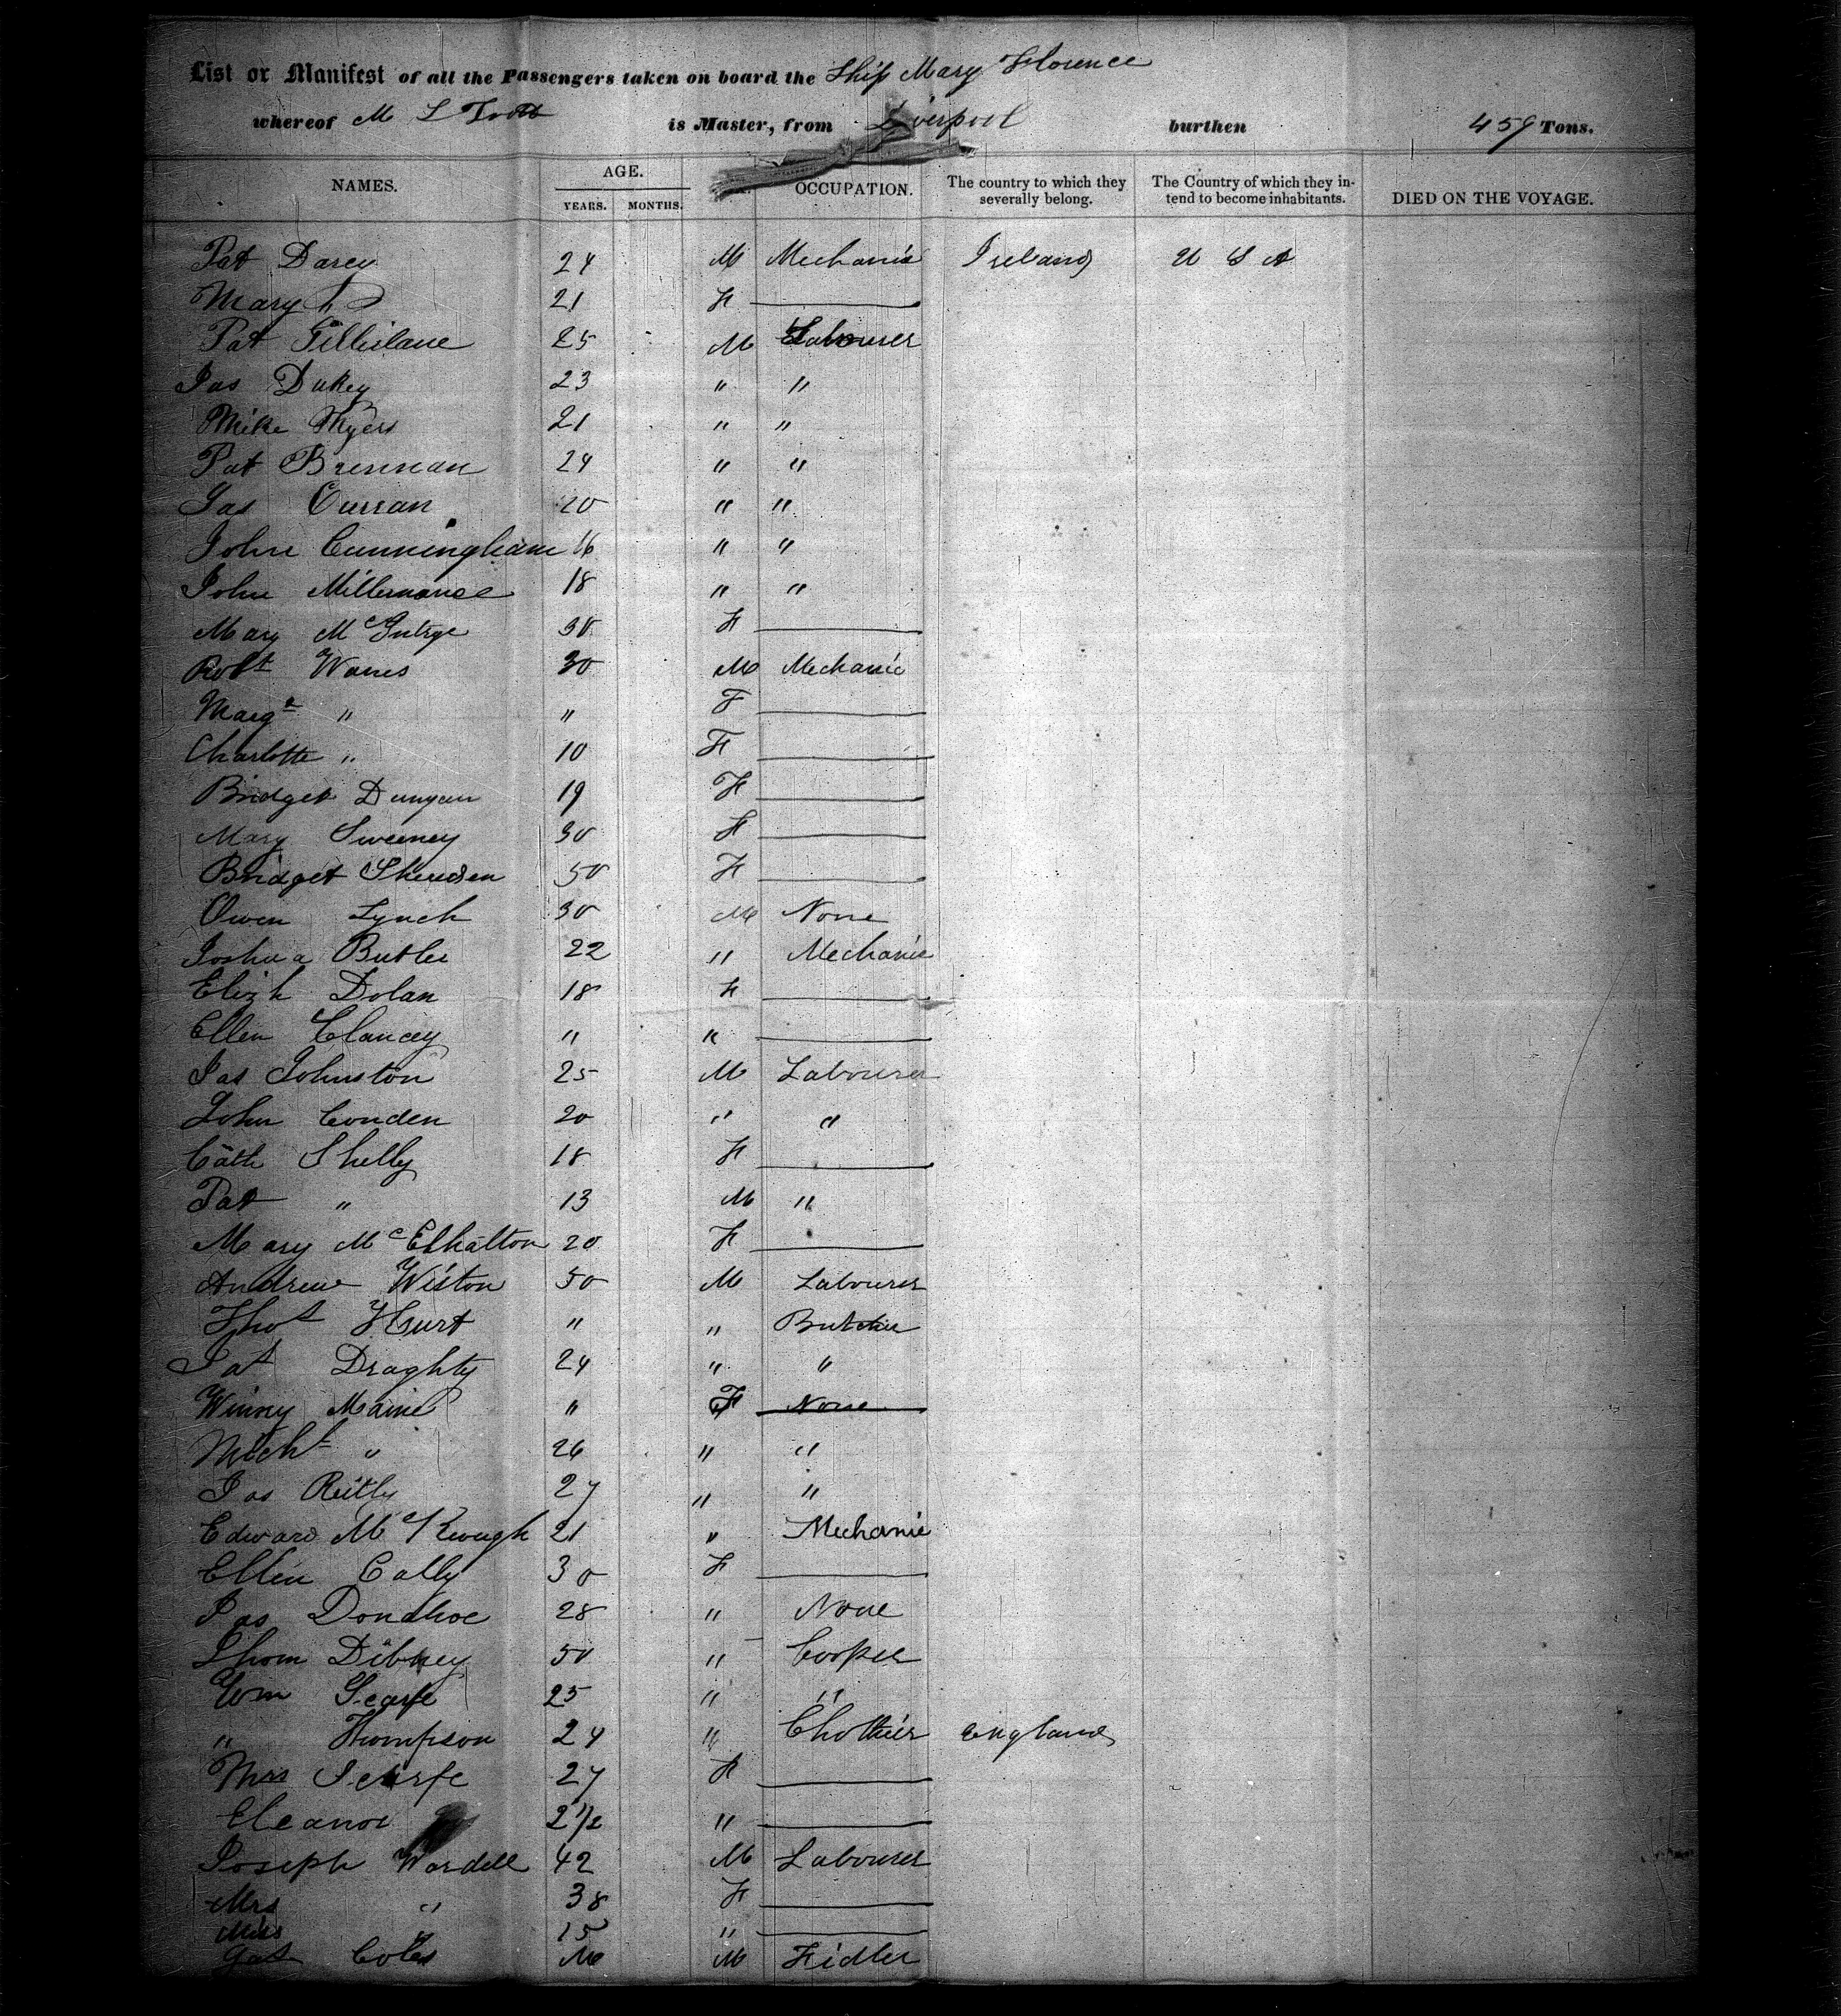 List or Manifest of all the Passengers taken on board the Ship Mary Florence
whereof M L Trott is Master, from Liverpool burthen 459 Tons.
NAMES. AGE. YEARS. MONTHS. OCCUPATION. The country to which they severally belong. The Country of which they intend to become inhabitants. DIED ON THE VOYAGE.
Pat Darcy 24 M Mechanic Ireland U S A
Mary D 21 F
Pat 25 M Labourer
Jas Dukey 23 " "
Mike Myers 21 " "
Pat Brennan 24 " "
Jas Curran 20 " "
John Cunningham 16 " "
John 18 " "
Mary 30 F
Robt Wanes 30 M Mechanic
Margt " " F
Charlotte " 10 F
Bridget Dungan 19 F
Mary Sweeney 30 F
Bridget 50 F
Owen Lynch 30 M None
Joshua Butler 22 " Mechanic
Elizh Dolan 18 F
Ellen Clancey " "
Jas Johnston 25 M Labourer
John Conden 20 " "
Cath Shelly 18 F
Pat " 13 M "
Mary McElhatton 20 F
Andrew Wiston 50 M Labourer
Thos Hurt " " Butcher
Pat Draghty 24 " "
Winny Maine " F None
Michl " 26 " "
Jas Reilly 27 " "
Edward McKeough 21 " Mechanic
Ellen Cally 30 F
Jas Donahoe 28 " None
Thom Dibney 50 " Cooper
Wm Scarfe 25 " "
" Thompson 24 " Clothier England
Mrs Scarfe 27 F
Eleanor 2 1/2 "
Joseph Wardell 42 M Labourer
Mrs " 38 F
Miss " 15 "
Coles M M Fidler